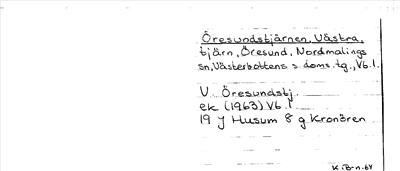 Öresundstjärnen, Västra,
tjärn, Öresund, Nordmalings
sn, Västerbottens s. doms. tg., V6.1.
V. Öresundstj.
ek (1963) V6.1
19 J Husum 8 g Kronören
K.B-n.64